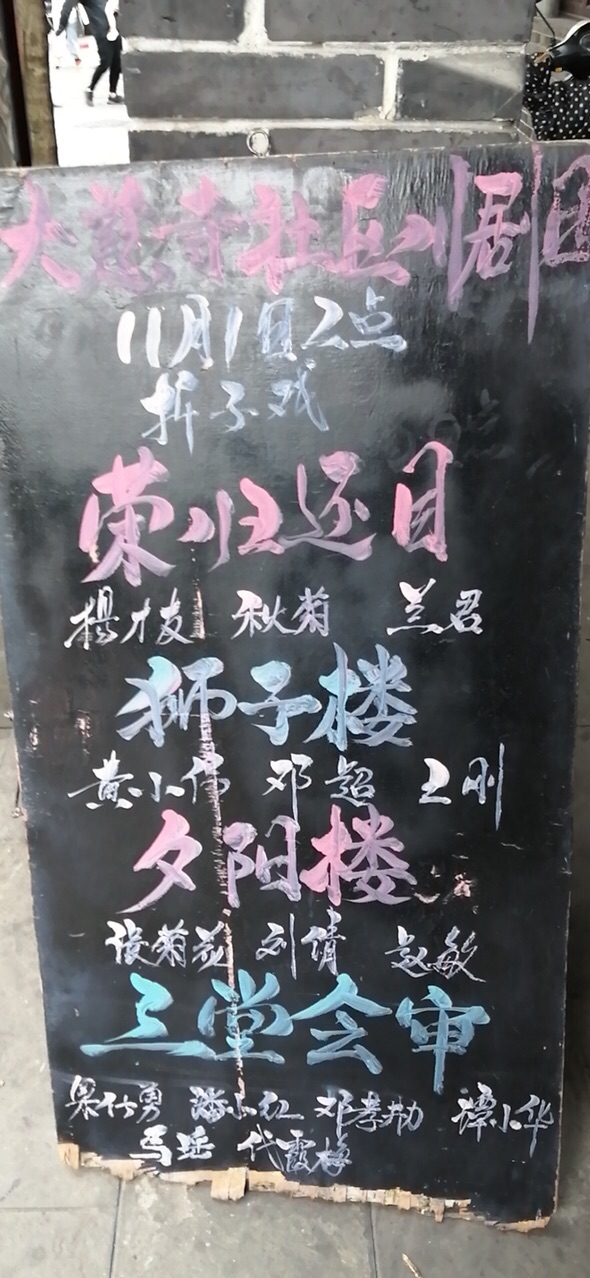 大慈寺社区川剧团
11月1日2点
折子戏
荣归还目
楊才枝 秋菊 兰君
狮子楼
黄小伟 邓超 王刚
夕阳楼
张菊花 刘倩 赵敏
三堂会审
仕勇 潘小红 邓孝勛 谭小华
马 代霞梅